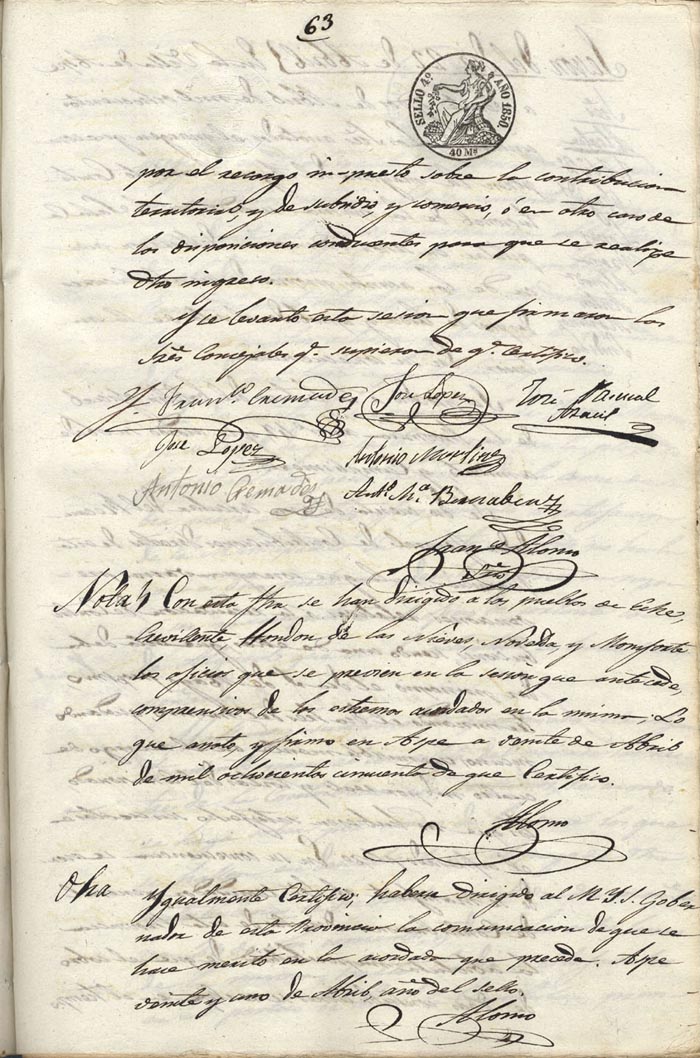 63
SELLO 4º AÑO 1850.
40 Ms
por el recargo impuesto sobre la contribucion
territorial, y de subsidio, y comercio, ó en otro caso de
las disposiciones conducentes para que se realize
dho ingreso.
Y se levantó esta sesion que firmaron los
Sres Concejales q. supieron de q. Certifico.
Franco. Cremades Jose Lopez José Pascual
Jose Lopez Antonio Martinez
Antonio Cremades Anto. Ma. Berrabeu
Franco Alonso
Srio
Nota Con esta fha se han dirigido a los pueblos de Elche,
Crevillente, Hondon de las Nieves, Novelda, y Monforte
los oficios que se previen en la sesion que antecede,
comprensivos de los estremos acordados en la misma. Lo
que anoto, y firmo en Aspe a veinte de Abril
de mil ochocientos cincuenta de que Certifico.
Alonso
Otra Ygualmente Certifico; haberse dirigido al M. Y. S. Gober
nador de esta Provincia la comunicacion de que se
hace merito en la acordada que precede. Aspe
veinte y uno de Abril, año del sello.
Alonso